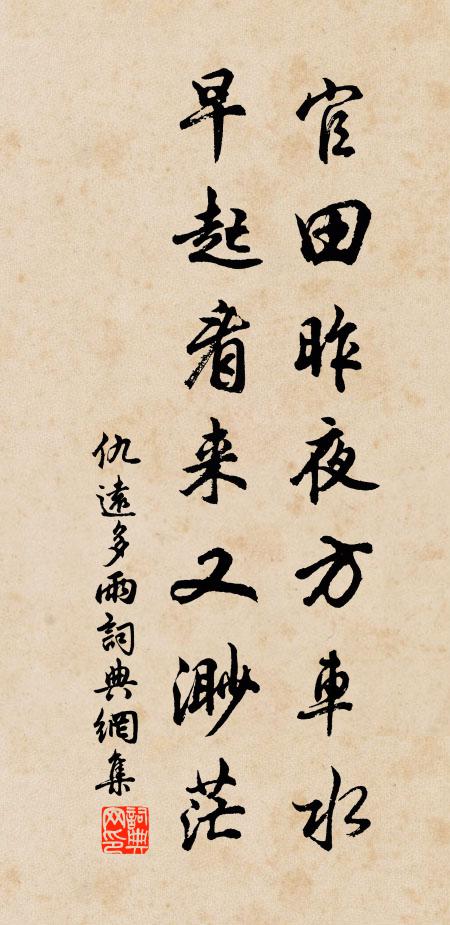 官田昨夜方車水
早起看来又渺茫
仇遠多雨詞典網集
詞典网印